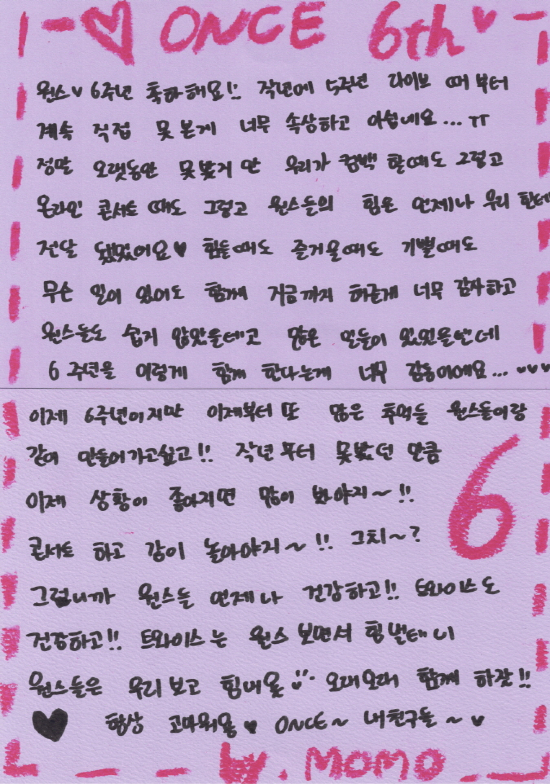 ONCE 6th
원스♥ 6주년 축하해요!! 작년에 5주년 라이브 때부터
계속 직접 못본게 너무 속상하고 아쉽네요... ㅠ
정말 오랫동안 못봤거 만 우리가 컴백 할때도 그렇고
온라인 콘서트 때도 그렇고 원스들의 힘은 언제나 우리 한테
전달 됐었어요♥ 힘들때도 즐거울때도 기쁠때도
무슨 일이 있어도 함께 지금까지 하는게 너무 감사하고
원스들도 쉽지 않았을테고 많은 일들이 있었을텐데
6주년을 이렇게 함께 한다는게 너무 감동이에요...♥♥♥
이제 6주년이지만 이제부터 또 많은 추억들 원스들이랑
같이 만들어가고싶고!! 작년부터 못봤던 만큼
이제 상황이 좋아지면 많이 봐야지~!!
콘서트 하고 같이 놀아야지~!! 그치~?
6
그럼니까 원스들 언제나 건강하고!! 트와이스도
건강하고!! 트와이스는 원스 보면서 힘낼테니
원스들은 우리 보고 힘내용 오래오래 함께 하잣!!
♥ 항상 고마워용♥ ONCE~ 내친구들~♥
by. MOMO